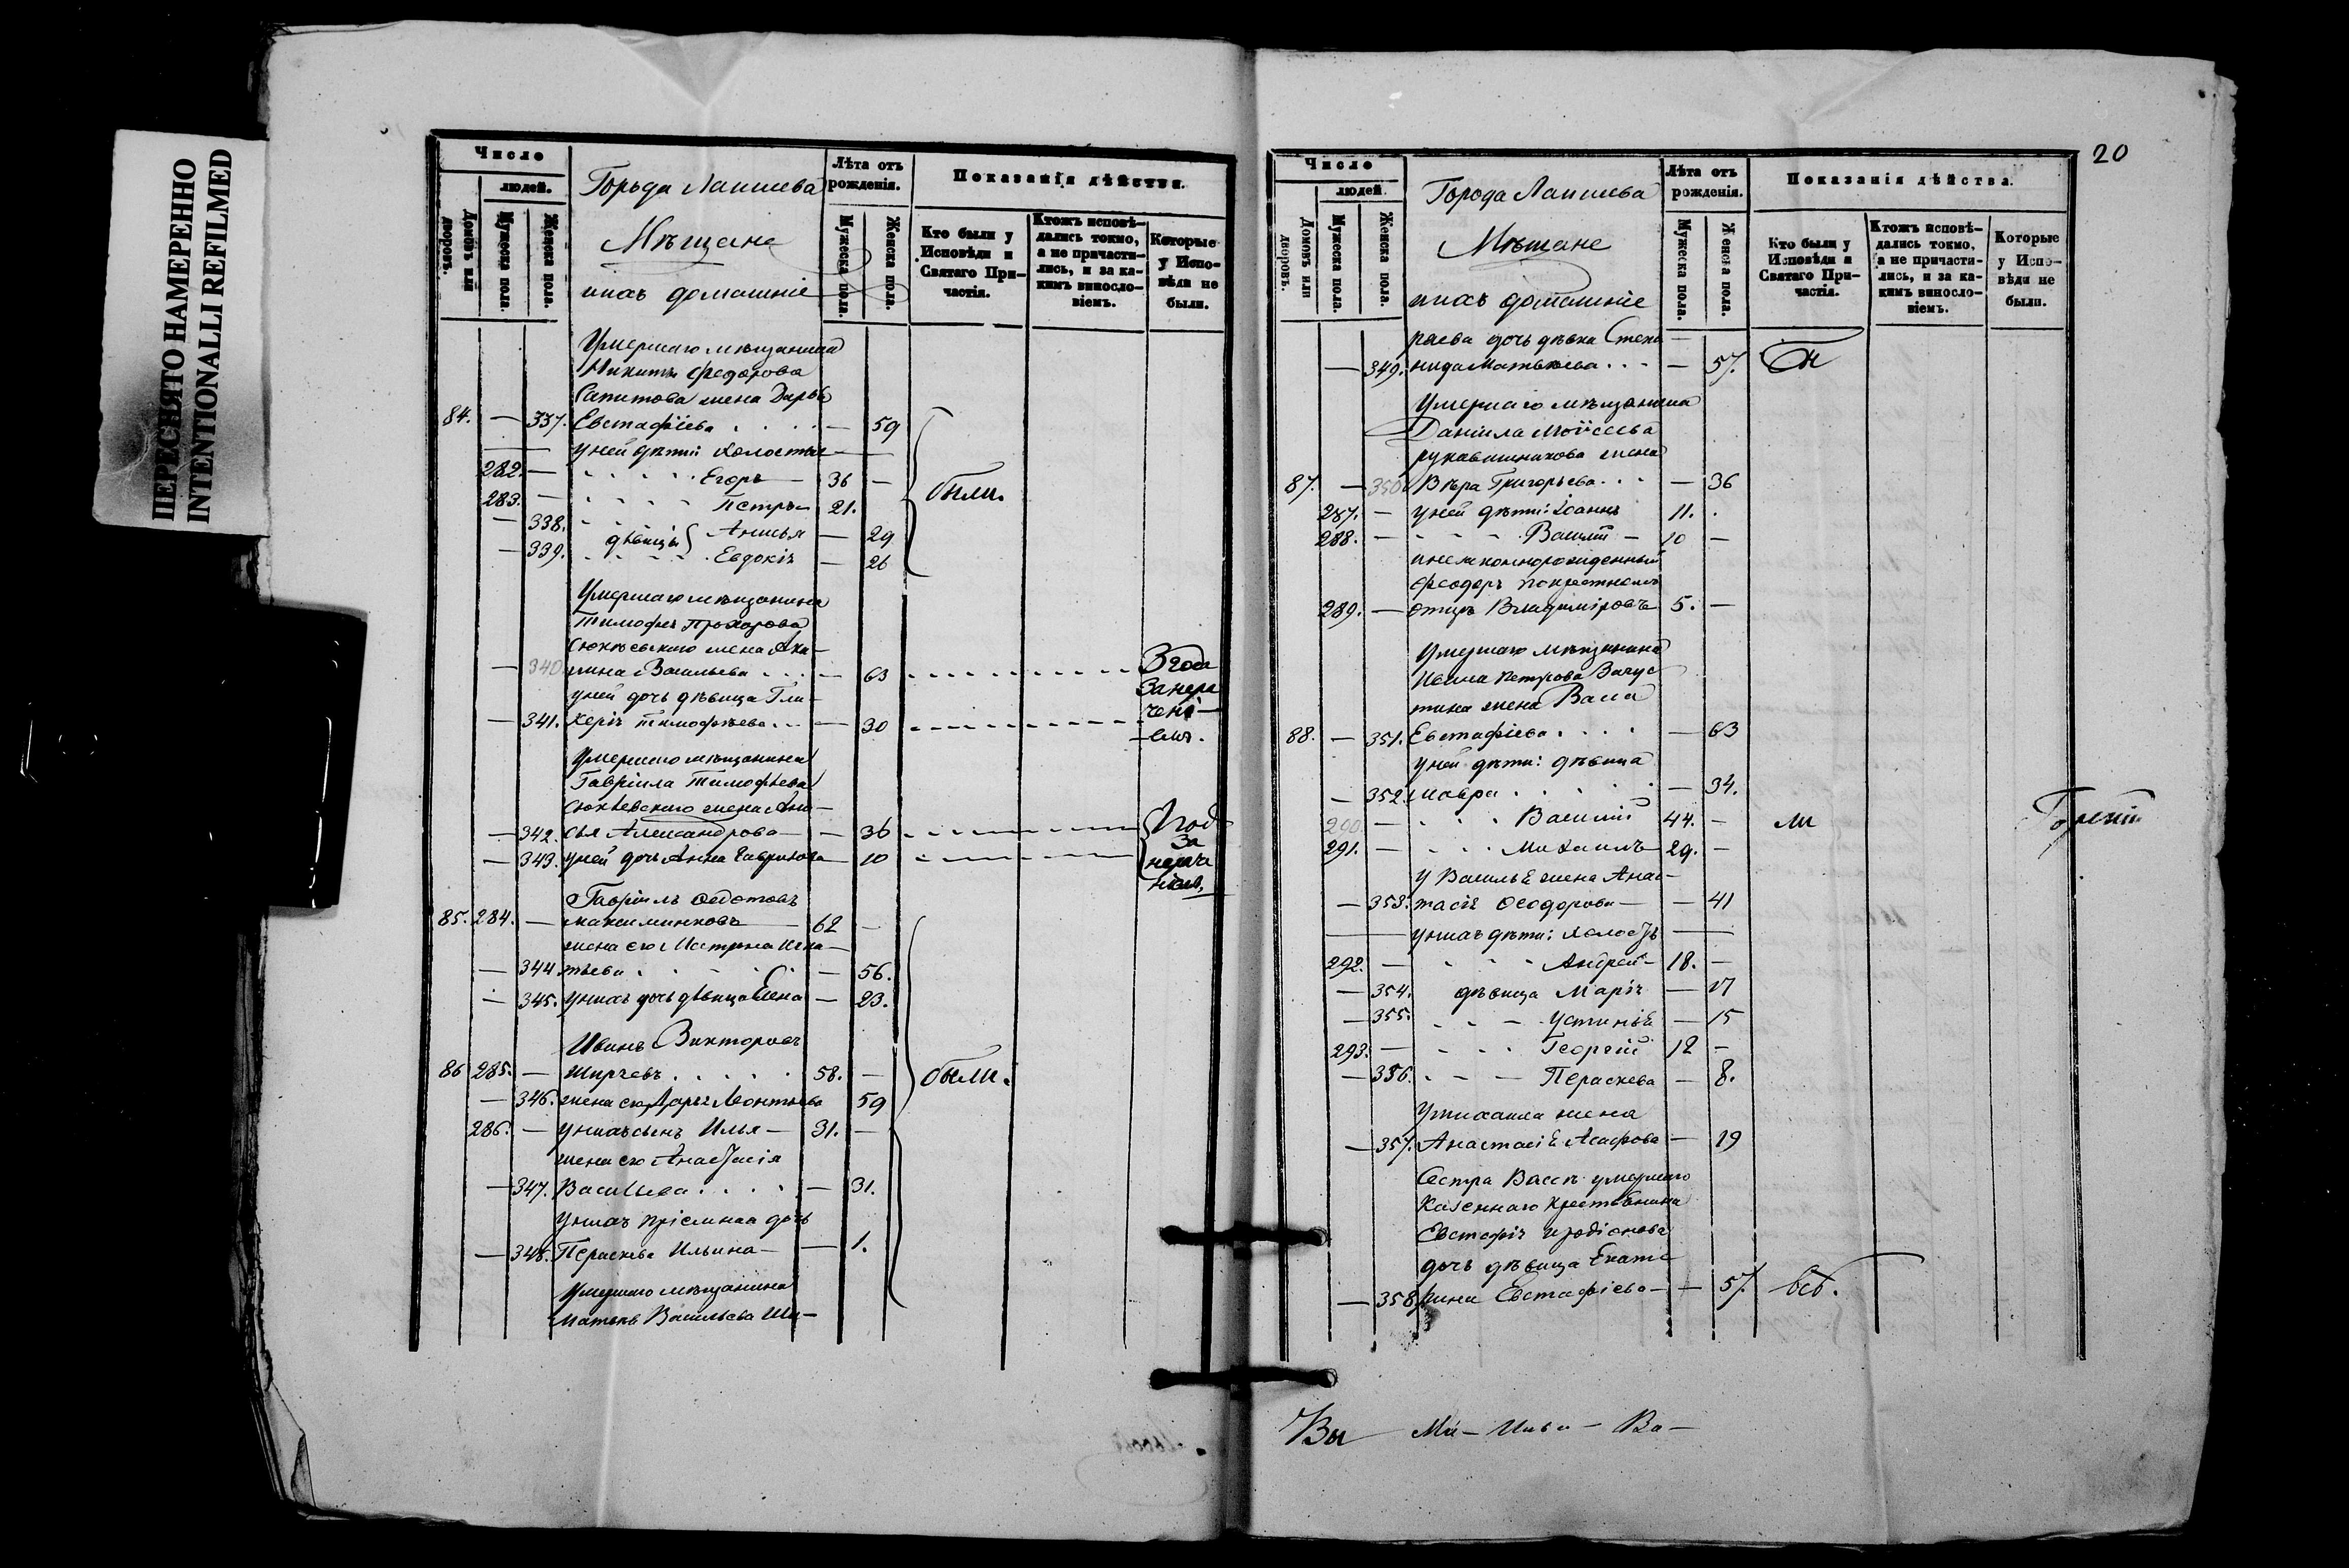 ПЕРЕСНЯТО НАМЕРЕННО
INTENTIONALLI REFILMED
Число
людей.
Домовъ или дворовъ.
Мужеска пола.
Женска пола.
Города Лаишева
Мѣщане
ихъ домашніе
Лѣта отъ рожденія.
Мужеска пола.
Женска пола.
Показанія дѣйства.
Кто были у Исповѣди и Святаго При-частія.
Ктожъ исповѣ-дались токмо, а не причасти-лись, и за ка-кимъ винословіемъ.
Которые у Испо-вѣди не были.
Умершаго мѣщанина
Никиты Федорова
Сапитова жена Дарья
84. — 337. Евстафіева . . . . — 59
у ней дѣти: холостые
282. — Егоръ — 36 —
283. — Петръ — 21.
— 338. дѣвицы Анисья — 29
— 339. Евдокія — 26
были.
Умершаго мѣщанина
Тимофея Прохорова
Сюкѣевскаго жена Аку-
— 340 лина Васильева . . . — 63
у ней дочь дѣвица Гли-
— 341. керія Тимофѣева . . — 30
3 года
за нере
чені-
емъ.
Умершаго мѣщанина
Гавріила Тимофѣева
Сюкѣевскаго жена Ани-
— 342. сья Александрова — — 36
— 343. у ней дочь Анна Гаврилова — 10
1 год
за
Гавріилъ Федотовъ
85. 284. — Максимниковъ — 62 —
жена его Матрена Игна-
— 344 тьева . . . . — 56.
— 345. у нихъ дочь дѣвица Елена — 23.
Иванъ Викторовъ
86 285. — Ширяевъ . . . . . 58. —
— 346. жена его Дарья Леонтьева 59
286. — у нихъ сынъ Илья — 31. —
жена его Анастасія
— 347. Васильева . . . . — 31.
у нихъ пріемная дочь
— 348. Параскева Ильина — — 1.
были.
Умершаго мѣщанина
Матвѣя Васильева Ши-
20
Число
людей.
Домовъ или дворовъ.
Мужеска пола.
Женска пола.
Города Лаишева
Мѣщане
ихъ домашніе
Лѣта отъ рожденія.
Мужеска пола.
Женска пола.
Показанія дѣйства.
Кто были у Исповѣди и Святаго При-частія.
Ктожъ исповѣ-дались токмо, а не причасти-лись, и за ка-кимъ винословіемъ.
Которые у Испо-вѣди не были.
раева дочь дѣвка Степа —
— 349. нида Матвѣева . . . — 57.
Умершаго мѣщанина
Даніила Моисеева
рукавишникова жена
87. — 350 Вѣра Григорьева . . . — 36
287. — у ней дѣти: Іоаннъ 11.
288. — Василій — 10 —
и незаконнорожденный
Феодоръ по крестномъ
289. — отцѣ Владиміровъ 5. —
Умершаго мѣщанина
Ивана Петрова
жена Васса
88. — 351. Евстафіева . . . . — 63
у ней дѣти: дѣвица
— 352. Мавра . . . . . — 34.
290. — Василій 44. —
ли
291. — Михаилъ 29. —
у Василья жена Анас-
— 353. тасія Феодорова — — 41
у нихъ дѣти: холостъ
292. — Андрей — 18. —
— 354. дѣвица Марія — 17
— 355. Устинья — 15
293. — Георгій 12 —
— 356. Параскева — 8.
У Михаила жена
— 357. Анастасія Агафова — 19
Сестра Вассы умершаго
Казеннаго крестьянина
Евстафія Иродіонова
дочь дѣвица Екате
— 358. рина Евстафіева — — 57.
Вы Ми — Ва —